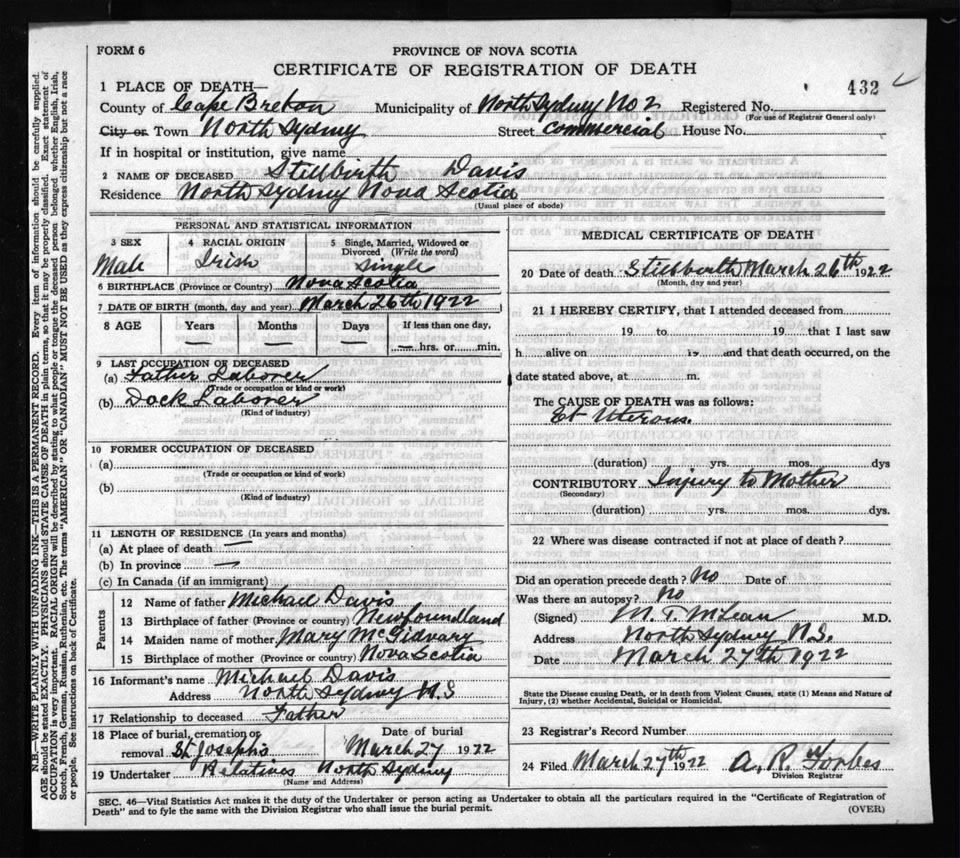 FORM 6
PROVINCE OF NOVA SCOTIA
CERTIFICATE OF REGISTRATION OF DEATH
432
1 PLACE OF DEATH—
County of Cape Breton Municipality of North Sydney No 2 Registered No.
(For use of Registrar General only)
City or Town North Sydney Street Commercial House No.
If in hospital or institution, give name
2 NAME OF DECEASED Stillbirth Davis
Residence North Sydney Nova Scotia
(Usual place of abode)
PERSONAL AND STATISTICAL INFORMATION
3 SEX
Male
4 RACIAL ORIGIN
Irish
5 Single, Married, Widowed or
Divorced (Write the word)
Single
6 BIRTHPLACE (Province or Country) Nova Scotia
7 DATE OF BIRTH (month, day and year) March 26th 1922
8 AGE Years Months Days If less than one day,
— — — — hrs. or min.
9 LAST OCCUPATION OF DECEASED
(a) Father Laborer
(Trade or occupation or kind or work)
(b) Dock Laborer
(Kind of industry)
10 FORMER OCCUPATION OF DECEASED
(a)
(Trade or occupation or kind of work)
(b)
(Kind of industry)
11 LENGTH OF RESIDENCE (In years and months)
(a) At place of death —
(b) In province —
(c) In Canada (if an immigrant)
Parents
12 Name of father Michael Davis
13 Birthplace of father (Province or country) Newfoundland
14 Maiden name of mother Mary McGidvary
15 Birthplace of mother (Province or country) Nova Scotia
16 Informant's name Michael Davis
Address North Sydney N.S
17 Relationship to deceased Father
18 Place of burial, cremation or
removal St Joseph's
Date of burial
March 27 1922
19 Undertaker Relatives North Sydney
(Name and Address)
MEDICAL CERTIFICATE OF DEATH
20 Date of death Stillbirth March 26th 1922
(Month, day and year)
21 I HEREBY CERTIFY, that I attended deceased from
19 to 19 that I last saw
h alive on 19 and that death occurred, on the
date stated above, at m.
The CAUSE OF DEATH was as follows:
Et Uterous.
(duration) yrs. mos. dys
CONTRIBUTORY Injury to Mother
(Secondary)
(duration) yrs. mos. dys.
22 Where was disease contracted if not at place of death?
Did an operation precede death? No Date of
Was there an autopsy? No
(Signed) M. T. McLean M.D.
Address North Sydney N.S.
Date March 27th 1922
State the Disease causing Death, or in death from Violent Causes, state (1) Means and Nature of
Injury, (2) whether Accidental, Suicidal or Homicidal.
23 Registrar's Record Number
24 Filed March 27th 1922 A. R. Forbes
Division Registrar
SEC. 46—Vital Statistics Act makes it the duty of the Undertaker or person acting as Undertaker to obtain all the particulars required in the "Certificate of Registration of
Death" and to fyle the same with the Division Registrar who shall issue the burial permit.
(OVER)
N.B.—WRITE PLAINLY WITH UNFADING INK—THIS IS A PERMANENT RECORD. Every item of information should be carefully supplied.
AGE should be stated EXACTLY. PHYSICIANS should STATE CAUSE OF DEATH in plain terms, so that it may be properly classified. Exact statement of
OCCUPATION is very important. RACIAL ORIGIN will be described by stating to what people or tongue the deceased person belonged, whether English, Irish,
Scotch, French, German, Russian, Ruthenian, etc. The terms "AMERICAN" OR "CANADIAN" MUST NOT BE USED as they express citizenship but not a race
or people. See instructions on back of Certificate.